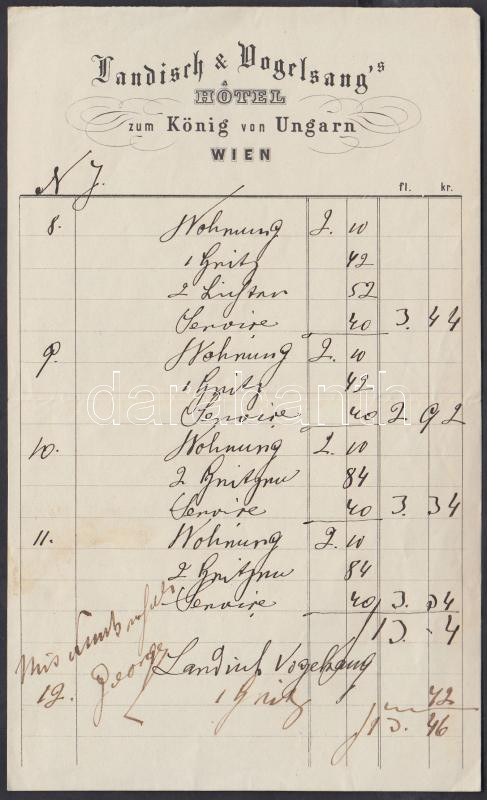 Landisch & Vogelsang's
HÔTEL
zum König von Ungarn
WIEN
N 7.
fl. kr.
8. Wohnung 2. 10
1 Heitz 42
2 Lichter 52
Service 40 3. 44
9. Wohnung 2. 10
1 Heitz 42
Service 40 2. 92
10. Wohnung 2. 10
2 Heitzen 84
Service 40 3. 34
11. Wohnung 2. 10
2 Heitzen 84
Service 40 3. 34
13. 4
Mit Dank erhalten
George
Landisch Vogelsang
12. 1 Heitz 42
13. 46
darabanth